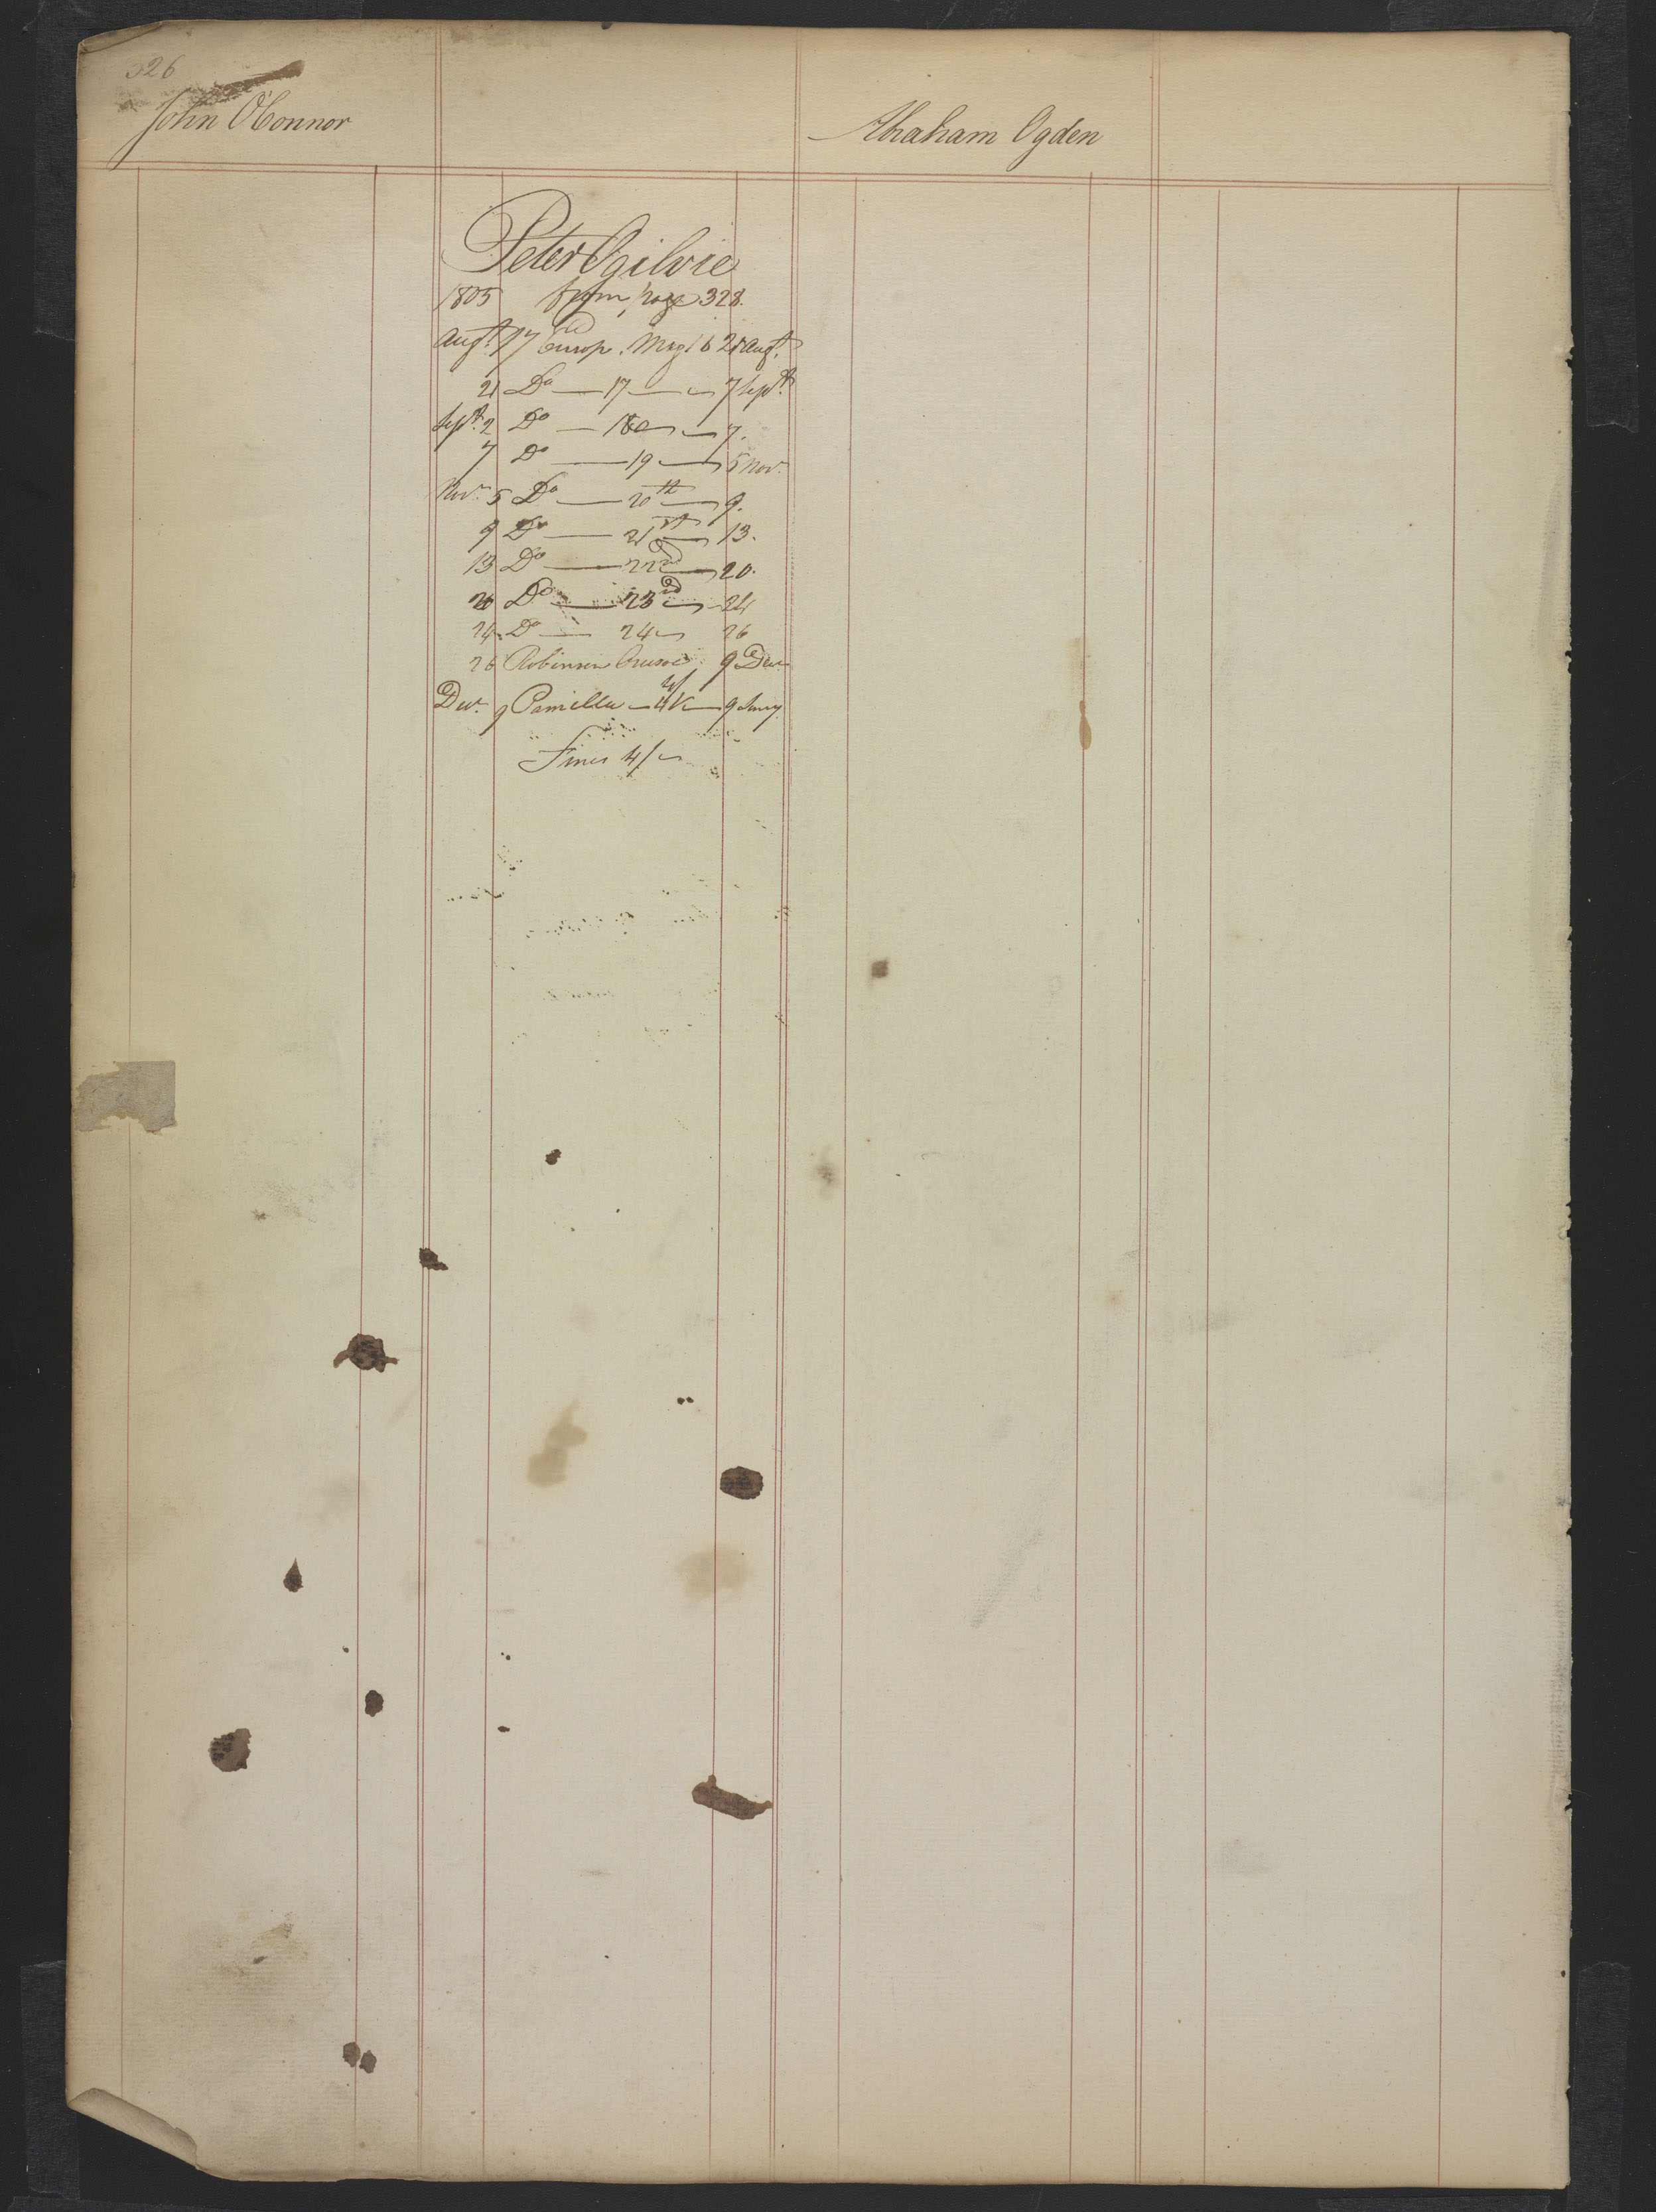 326
John O'Connor
Abraham Ogden
Peter Ogilvie
1805 from page 328.
Augt. 17 Europ. Mag 16 21 Augt.
21 Do — 17 — 7 Sept.
Sept. 2 Do — 18 — 7.
7 Do — 19 — 5 Nov.
Nov. 5 Do — 20th — 9.
9 Do — 21st — 13.
13 Do — 22nd — 20.
20 Do — 23rd — 24
24 Do — 24 26
26 Robinson Crusoe 9 Decr.
Decr. 9 Pamilla — 4 V — 9 Jany.
Fines 4/